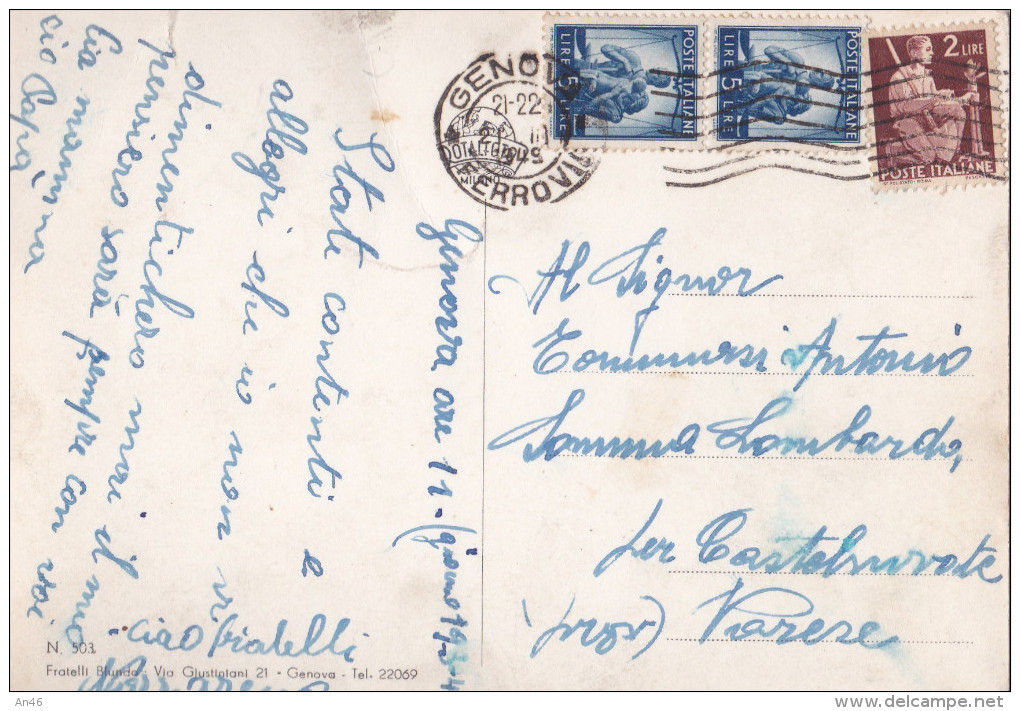 Genova ore 11 - (giorno 19-3-4
State contenti e
allegri che io non vi
dimenticherò mai il mio
pensiero sarà sempre con voi
ciao mamma
ciao Papà
- ciao fratelli
GENOVA
FERROVIA
21-22
MILANO
POSTE ITALIANE
LIRE 5
POSTE ITALIANE
LIRE 5
2 LIRE
POSTE ITALIANE
Al Signor
Tommasi Antonio
Somma Lombardo,
per Castelnovate
(prov) Varese
N. 503
Fratelli Blundo - Via Giustiniani 21 • Genova - Tel. 22069
An46
delcampe.net